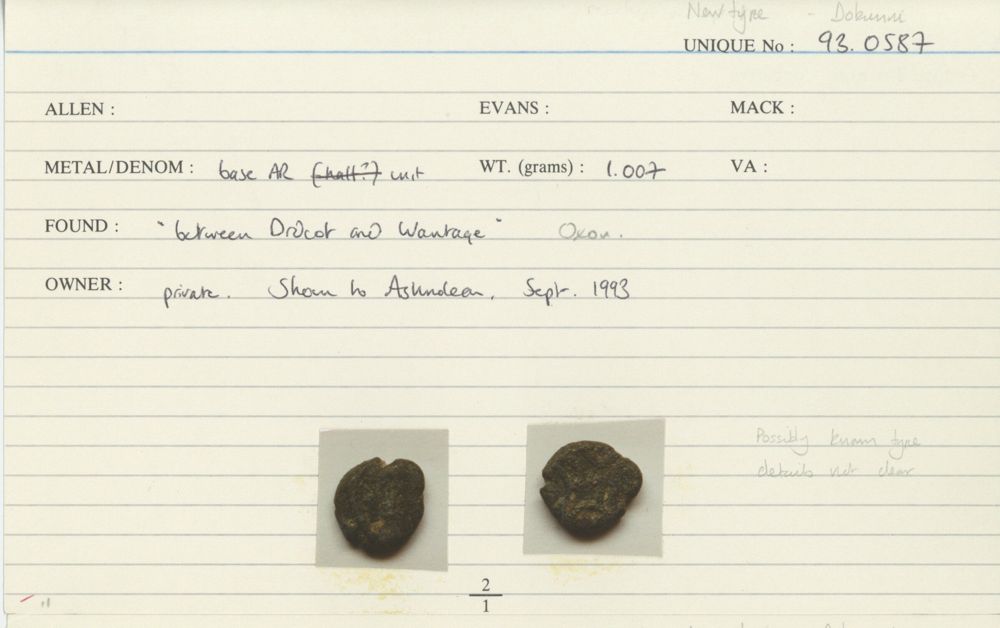 New type - Dobunni
UNIQUE No : 93.0587
ALLEN : EVANS : MACK :
METAL/DENOM : base AR (half?) unit WT. (grams) : 1.007 VA :
FOUND : "between Didcot and Wantage" Oxon.
OWNER : private. Shown to Ashmolean, Sept. 1993
Possibly known type
details not clear
2
1